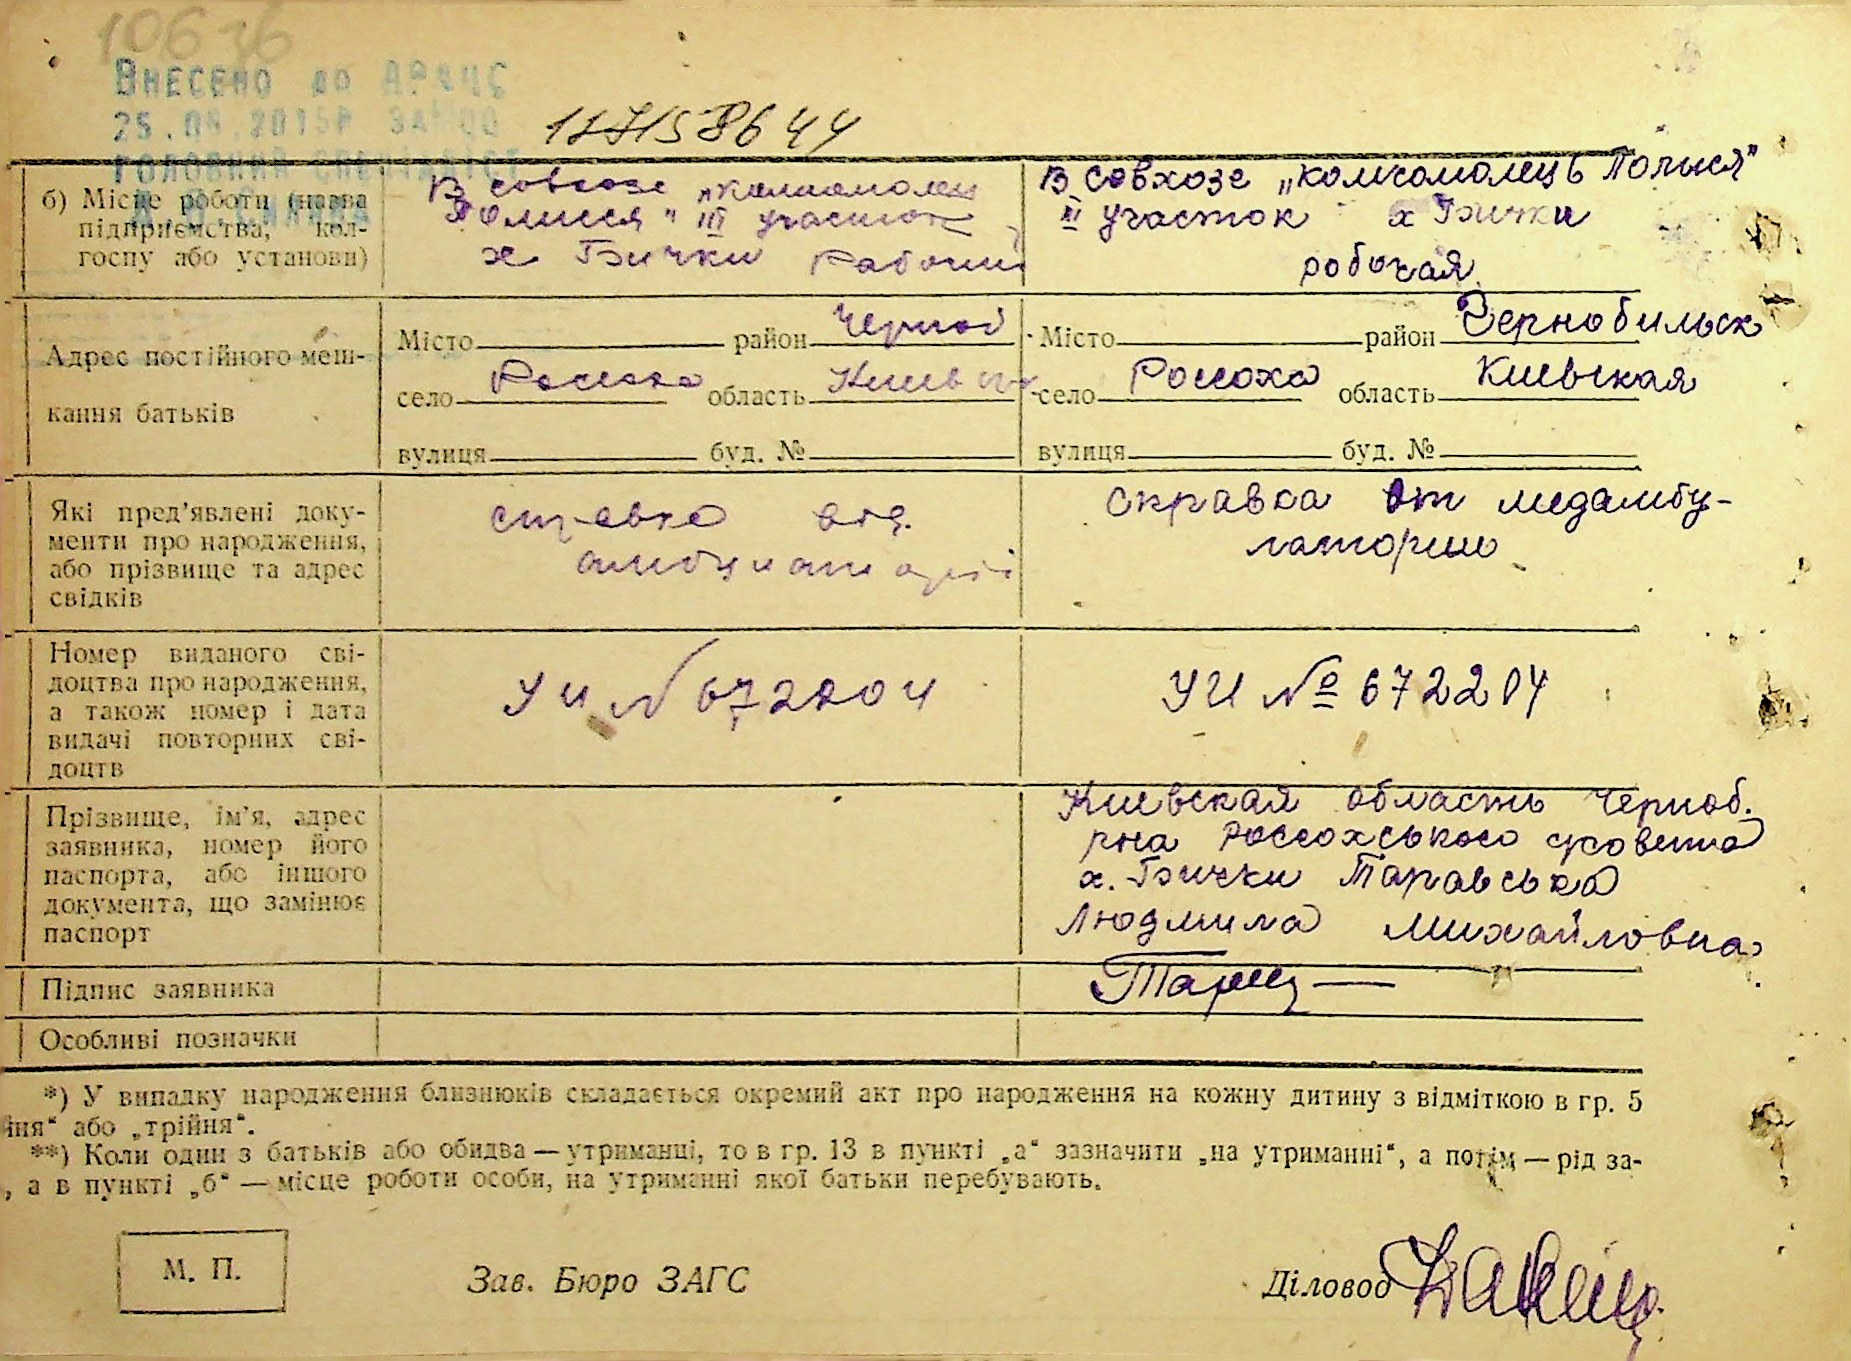 10636
Внесено до ДРАЦС
25.08.2015р
головний спеціаліст
б) Місце роботи (назва
підприємства, кол-
госпу або установи)
В совхозе „комсомолец
Полисся" III участок
х Бички Рабочий
В совхозе „комсомолець Полисся"
III участок х Бички
робочая
Адрес постійного меш-
кання батьків
Місто район Черноб
село Россоха область Киевск
вулиця буд. №
Місто район Чернобильск
село Россоха область Киевская
вулиця буд. №
Які пред’явлені доку-
менти про народження,
або прізвище та адрес
свідків
справка від.
амбулаторії
справка от медамбу-
латории
Номер виданого сві-
доцтва про народження,
а також номер і дата
видачі повторних сві-
доцтв
УИ N 672204
УИ № 672204
Прізвище, ім’я, адрес
заявника, номер його
паспорта, або іншого
документа, що замінює
паспорт
Киевская область Черноб.
рна Россохського
х. Бички Таравська
Людмила Михайловна
Підпис заявника
Особливі позначки
*) У випадку народження близнюків складається окремий акт про народження на кожну дитину з відміткою в гр. 5
йня“ або „трійня“.
**) Коли один з батьків або обидва — утриманці, то в гр. 13 в пункті „а“ зазначити „на утриманні“, а потім — рід за-
, а в пункті „б“ — місце роботи особи, на утриманні якої батьки перебувають.
М. П.
Зав. Бюро ЗАГС
Діловод